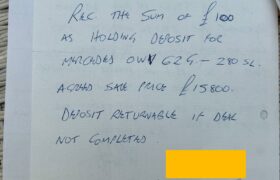 REC THE SUM OF £100
AS HOLDING DEPOSIT FOR
MERCEDES OWV 62G - 280 SL.
AGREED SALE PRICE £15800.
DEPOSIT RETURNABLE IF DEAL
NOT COMPLETED.